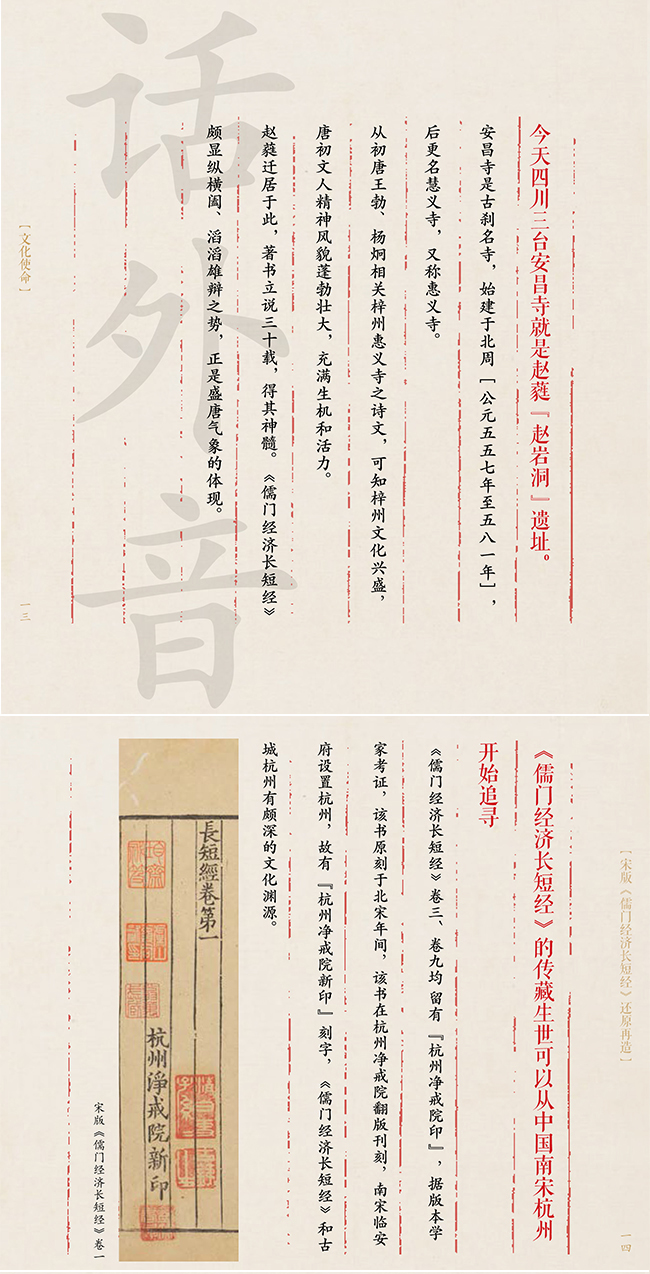 话外音
今天四川三台安昌寺就是赵蕤『赵岩洞』遗址。
安昌寺是古刹名寺，始建于北周［公元五五七年至五八一年］，
后更名慧义寺，又称惠义寺。
从初唐王勃、杨炯相关梓州惠义寺之诗文，可知梓州文化兴盛，
唐初文人精神风貌蓬勃壮大，充满生机和活力。
赵蕤迁居于此，著书立说三十载，得其神髓。《儒门经济长短经》
颇显纵横阖、滔滔雄辩之势，正是盛唐气象的体现。
［文化使命］
一三
［宋版《儒门经济长短经》还原再造］
一四
《儒门经济长短经》的传藏生世可以从中国南宋杭州
开始追寻
《儒门经济长短经》卷三、卷九均留有『杭州净戒院印』，据版本学
家考证，该书原刻于北宋年间，该书在杭州净戒院翻版刊刻，南宋临安
府设置杭州，故有『杭州净戒院新印』刻字，《儒门经济长短经》和古
城杭州有颇深的文化渊源。
長短經卷第一
杭州淨戒院新印
宋版《儒门经济长短经》卷一